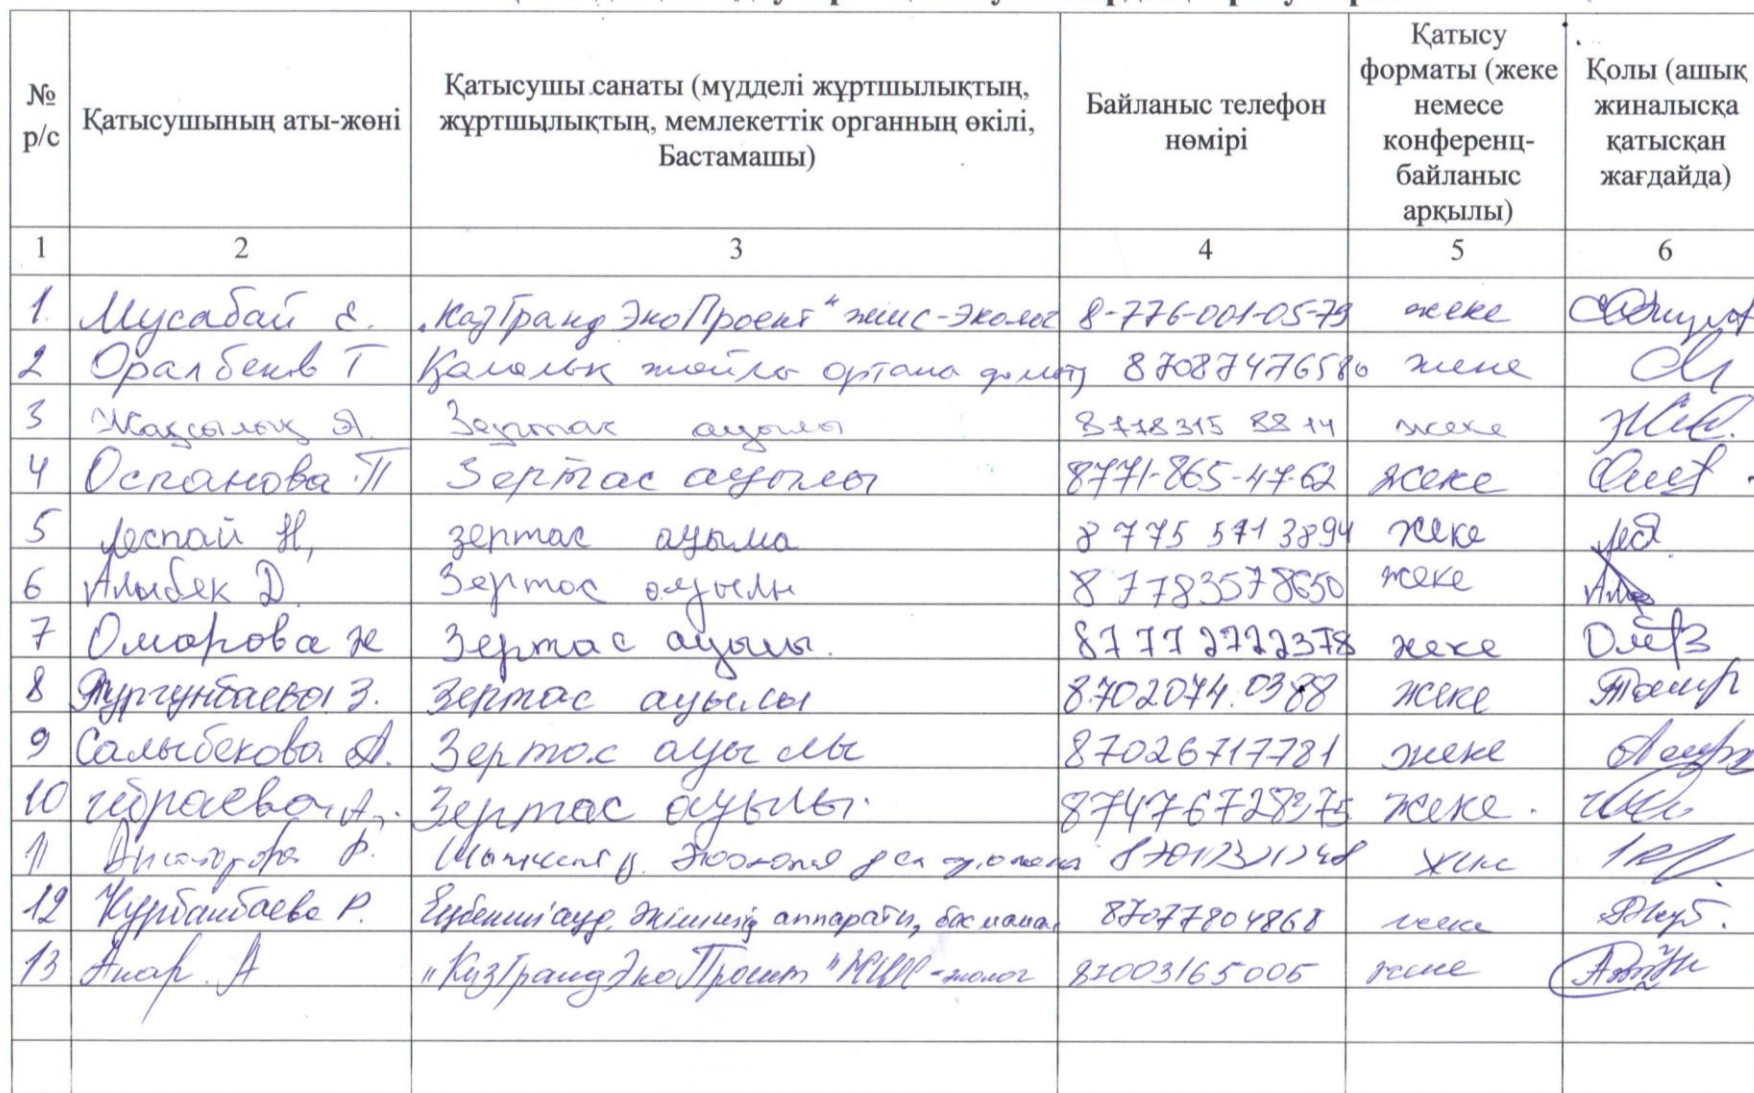 № р/с
Қатысушының аты-жөні
Қатысушы санаты (мүдделі жұртшылықтың,
жұртшылықтың, мемлекеттік органның өкілі,
Бастамашы)
Байланыс телефон
нөмірі
Қатысу
форматы (жеке
немесе
конференц-
байланыс
арқылы)
Қолы (ашық
жиналысқа
қатысқан
жағдайда)
1 2 3 4 5 6
1. Мусабай Е. "КазГрандЭкоПроект" жшс-эколог 8-776-001-05-79 жеке
2 Оралбеков Т Қалалық жайлы ортана 87087476580 жеке
3 Жақсылық Я. Зертас ауылы 8778315 88 14 жеке
4 Оспанова П Зертас ауылы 8771-865-47-62 жеке
5 Леспай Н, зертас ауыла 8 775 571 3894 жеке
6 Алыбек Д. Зертас ауылы 8 7783578650 жеке
7 Омарова Ж Зертас ауылы. 8777 2722378 жеке
8 Тургунбаева З. Зертас ауылы 8.702074.0388 жеке
9 Салыбекова А. Зертас ауылы 87026717781 жеке
10 Ибраева А,. Зертас ауылы. 87476728375 жеке.
11 Р. Шымкент қ. жеке
12 Нурбаибаева Р. Еңбекші ауд. әкімінің аппараты, бас маман 87077804868 жеке
13 Анар. А "КазГрандЭкоПроект" ЖШС-эколог 87003165005 жеке